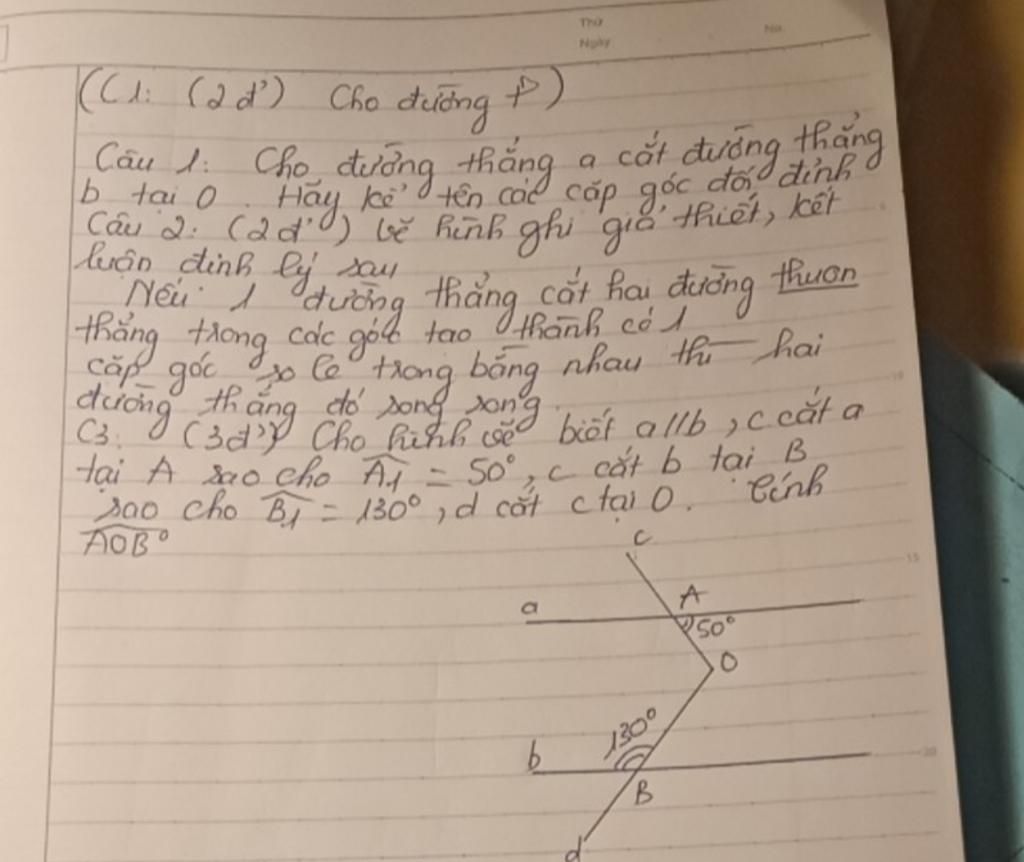 Thứ
Ngày
No
(C1: (2đ') Cho đường
Câu 1: Cho đường thẳng a cắt đường thẳng
b tại O. Hãy kể tên các cặp góc đối đỉnh
Câu 2: (2đ') Vẽ hình ghi giả thiết, kết
luận định lý sau
Nếu 1 đường thẳng cắt hai đường thuon
thẳng trong các góc tạo thành có 1
cặp góc so le trong bằng nhau thì hai
đường thẳng đó song song.
C3: (3đ') Cho hình vẽ biết a//b, c cắt a
tại A sao cho A1 = 50°, c cắt b tại B
sao cho B1 = 130°, d cắt c tại O. Tính
AOB°
c
a A
50°
O
130°
b
B
d
15
20